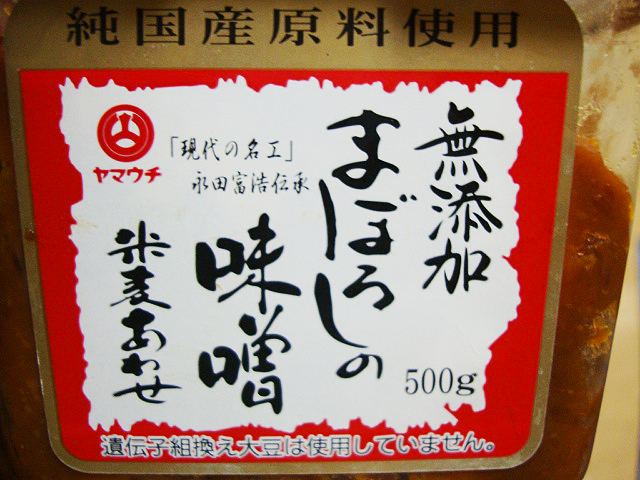 純国産原料使用
無添加
まぼろしの
味噌
米麦あわせ
「現代の名工」
永田富浩伝承
ヤマウチ
500g
遺伝子組換え大豆は使用していません。